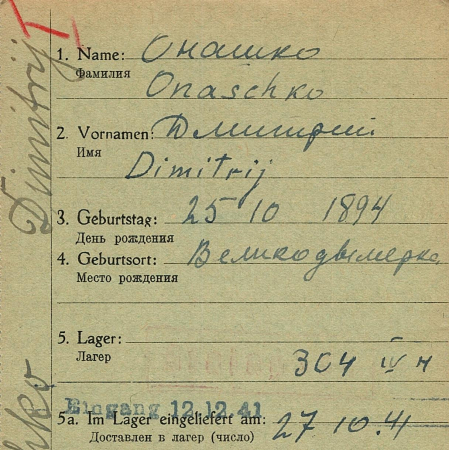 1. Name: Онашко
Фамилия
Onaschko
2. Vornamen: Дмитрий
Имя
Dimitrij
3. Geburtstag: 25 10 1894
День рождения
4. Geburtsort: Великодымерка
Место рождения
5. Lager:
Лагер
304 IV H
Eingang 12.12.41
5a. Im Lager eingeliefert am: 27 10. 41
Доставлен в лагер (число)
Dimitrij